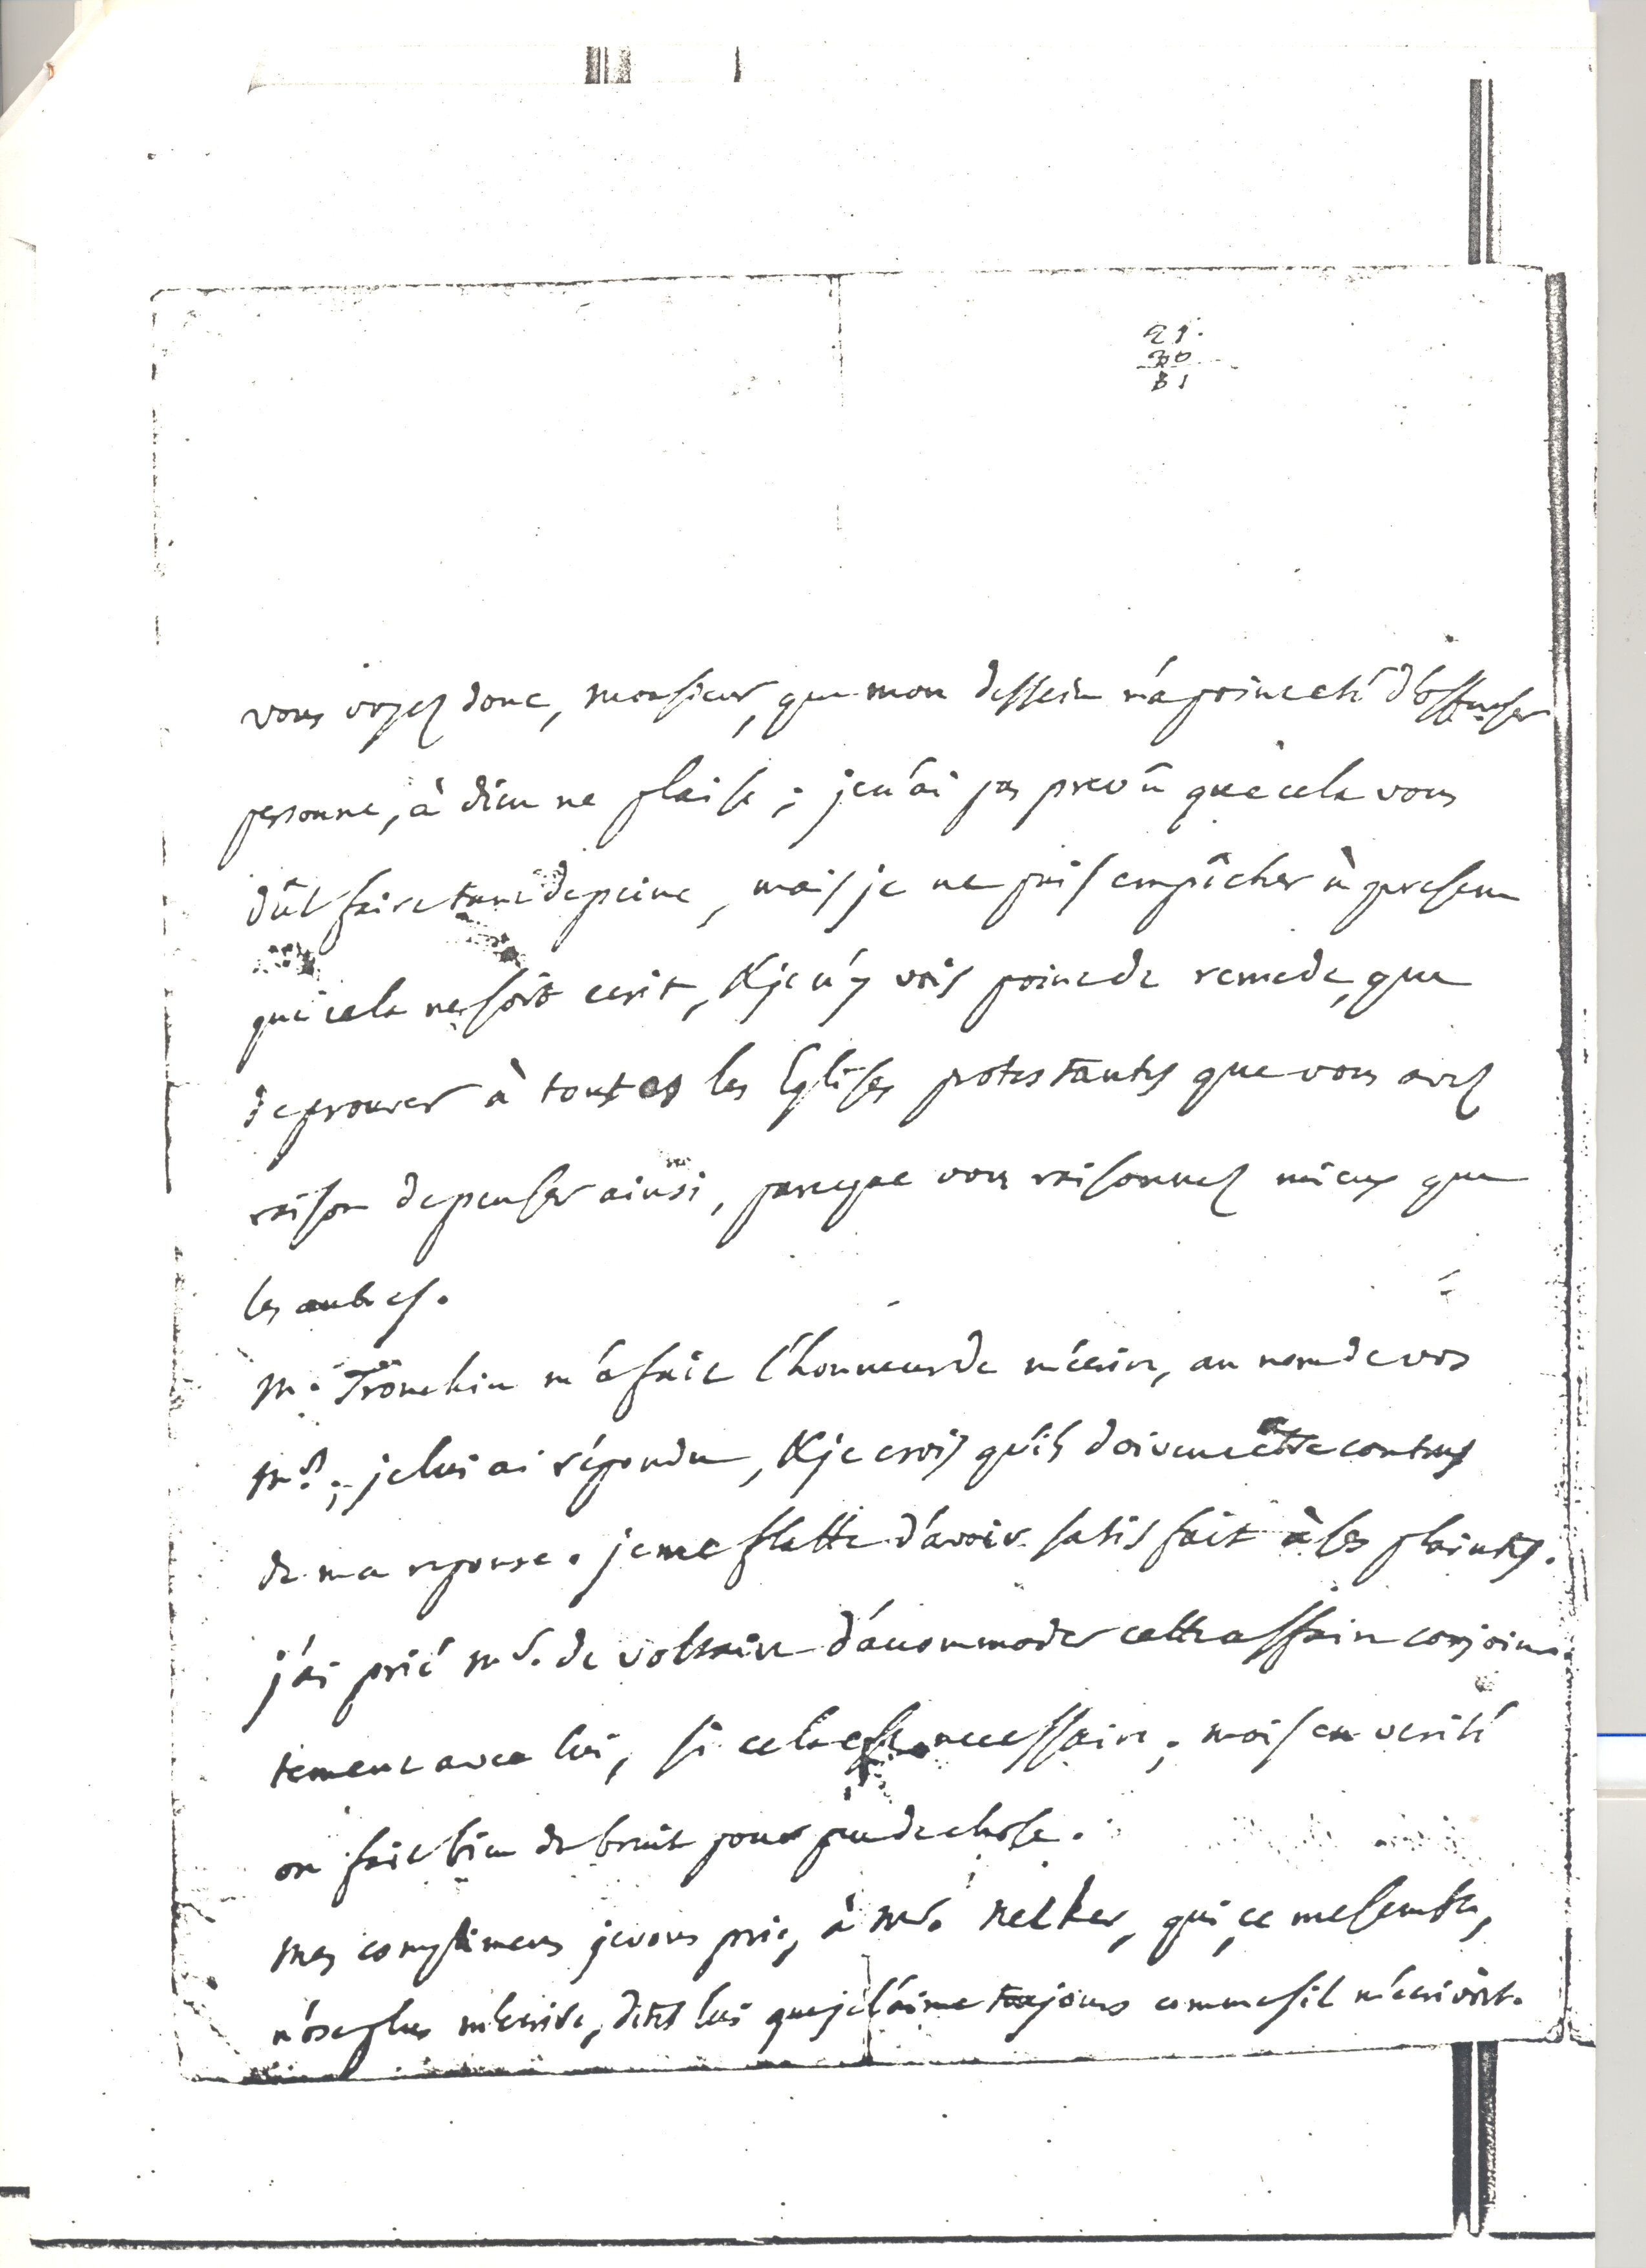 21.
30
51
vous voyez donc, monsieur, que mon dessein n'a point eté d'offenser
personne, à dieu ne plaise ; je n'ai pas prevû que cela vous
dût faire tant de peine, mais je ne puis empêcher à present
que cela ne soit ecrit, & je n'y vois point de remede, que
de prouver à toutes les Eglises protestantes que vous avez
raison de penser ainsi, parceque vous raisonnez mieux que
les autres.
M. Tronchin m'a fait l'honneur de m'écrire, au nom de vos
Mrs ; je lui ai répondu, & je crois qu'ils doivent être contens
de ma reponse. je me flatte d'avoir satisfait à ses plaintes.
j'ai prié Mr. de voltaire d'accommoder cette affaire conjoin-
tement avec lui, si cela est necessaire ; mais en verité
on fait bien de bruit pour peu de chose.
mes complimens je vous prie, à Mr. Necker, qui, ce me semble,
n'ose plus m'ecrire, dites lui que je l'aime toujours comme s'il m'ecrivoit.